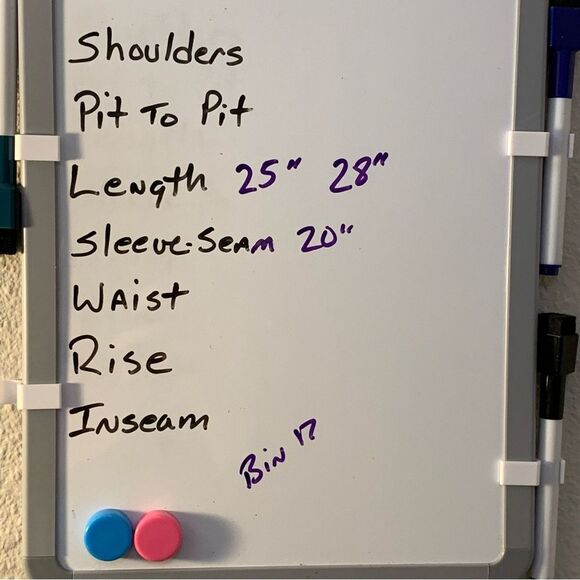 Shoulders
Pit To Pit
Length 25" 28"
Sleeve-Seam 20"
Waist
Rise
Inseam
Bin 17